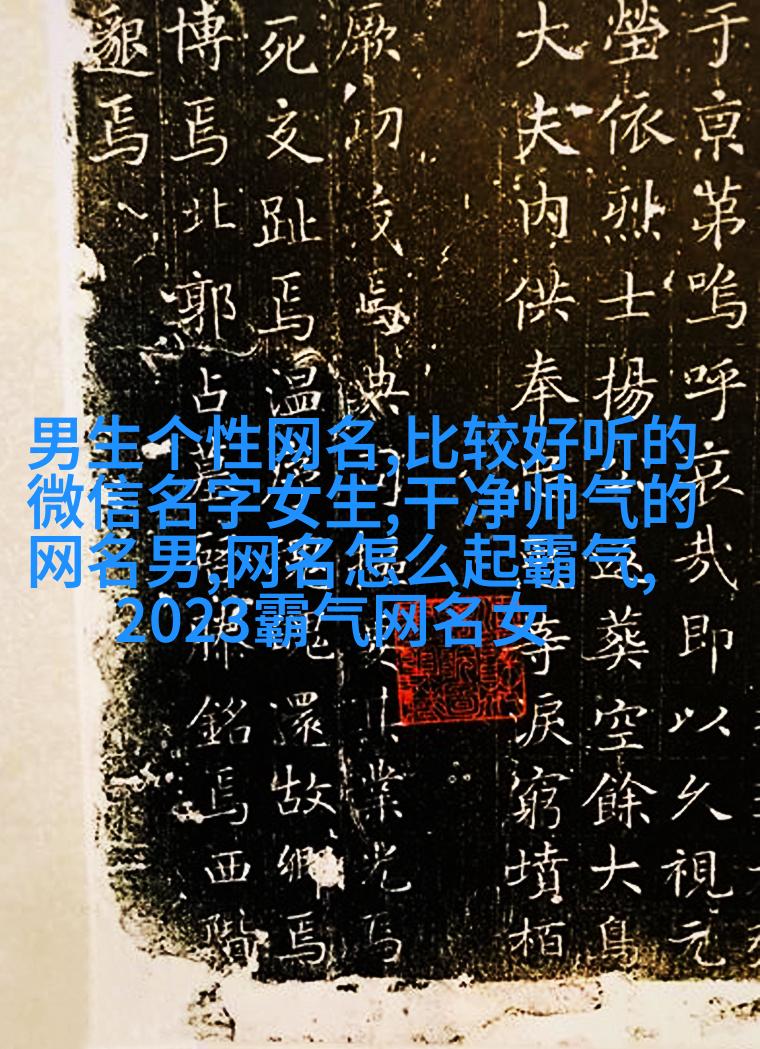 男生个性网名,比较好听的
微信名字女生,干净帅气的
网名男,网名怎么起霸气,
2023霸气网名女
于京第嗚呼哀哉即以久視元
塋依烈士揚葬空餘大鳥
大夫内供奉寺淚窮墳栢
厥功焉典業光焉
死交趾焉温還故鄉焉
博焉北郭占銘焉西階
邈焉